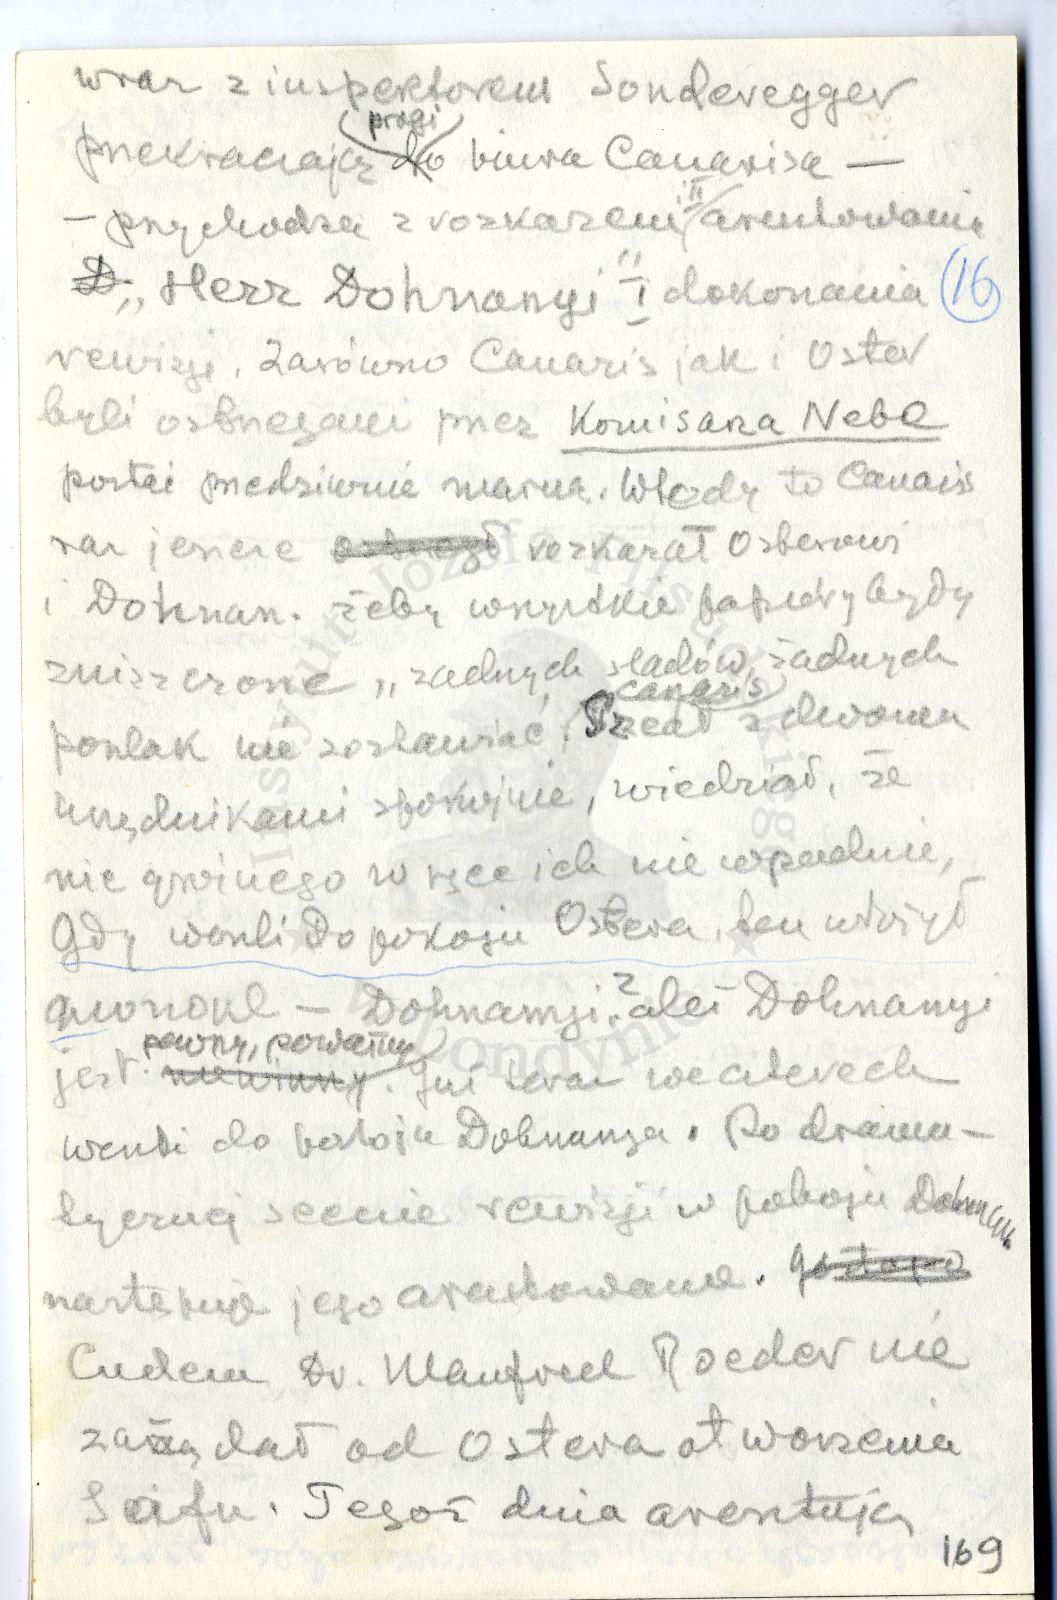 wraz z inspektorem Sonderegger
progi
przekraczają do biura Canarisa —
— przychodzą z rozkazem aresztowania
D „Herr Dohnanyi" I dokonania
16
rewizji. Zarówno Canaris jak i Oster
byli ostrzegani przez Komisarza Nebe
postać przedziwnie marną. Wtedy to Canaris
raz jeszcze ostrzegł rozkazał Osterowi
i Dohnan. żeby wszystkie papiery były
zniszczone „żadnych śladów, żadnych
canaris
poszlak nie zostawiać. Szedł z dwoma
urzędnikami spokojnie, wiedział, że
nic groźnego w ręce ich nie wpadnie,
Gdy weszli do pokoju Ostera, ten włożył
monokl — Dohnanyi? ależ Dohnanyi
pewny, poważny
jest niewinny. Już teraz we czterech
weszli do pokoju Dohnanya. Po drama-
tycznej scenie rewizji w pokoju Dohnany.
następuje jego aresztowanie. gestapo
Cudem Dr. Manfred Roeder nie
zażądał od Ostera otworzenia
Seifu. Tegoż dnia aresztują
169
Instytut Józefa Piłsudskiego
w Londynie